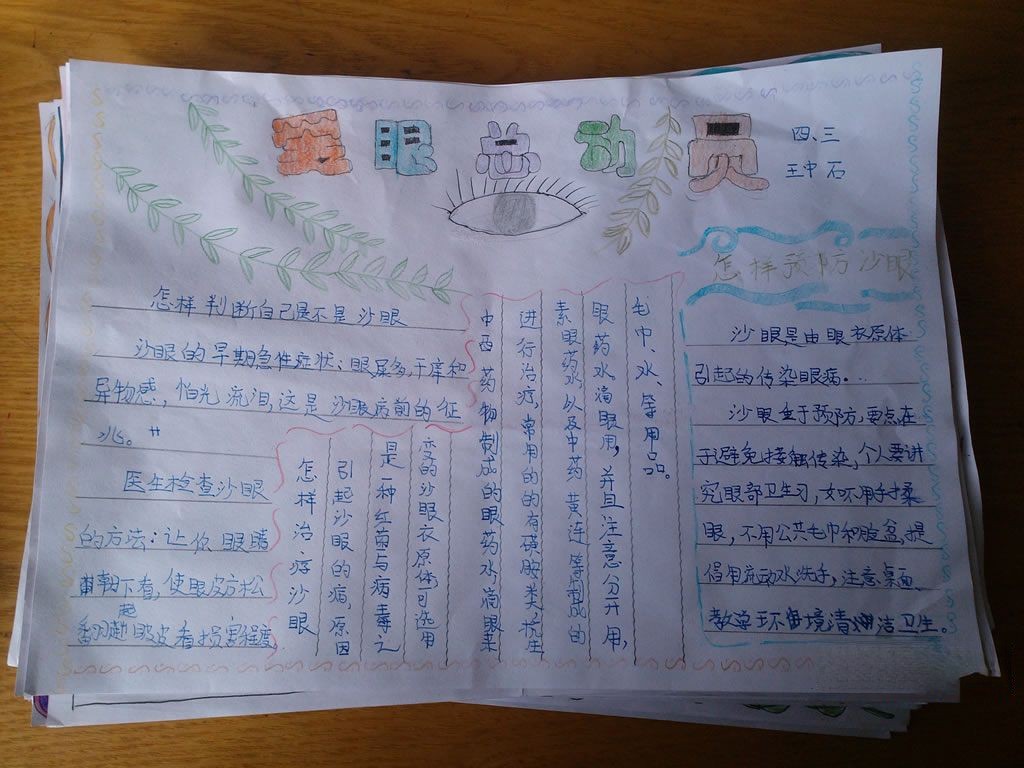 爱眼总动员
四、三
王中石
怎样判断自己是不是沙眼
沙眼的早期急性症状：眼屎多，干痒和
异物感，怕光 流泪，这是 沙眼病前的征
兆。"
医生检查沙眼
的方法：让你眼睛
朝下看，使眼皮方松
翻起眼皮看损害程度
怎样治疗沙眼
引起沙眼的病，原因
是一种红菌与病毒之
变的沙眼衣原体，可选用
中西药物制成的眼药水，滴眼来
进行治疗，常用的的有磺胺类、抗生
素眼药水，以及中药黄连等制成的
眼药水滴眼用，并且注意分开用，
毛巾、水、等用品。
怎样预防沙眼
沙眼是由眼衣原体
引起的传染眼病。
沙眼重于预防，要点在
于避免接触传染，个人要讲
究眼部卫生习，如不用手揉
眼，不用公共毛巾和脸盆，提
倡用流动水洗手，注意桌面、
教学环境清洁卫生。